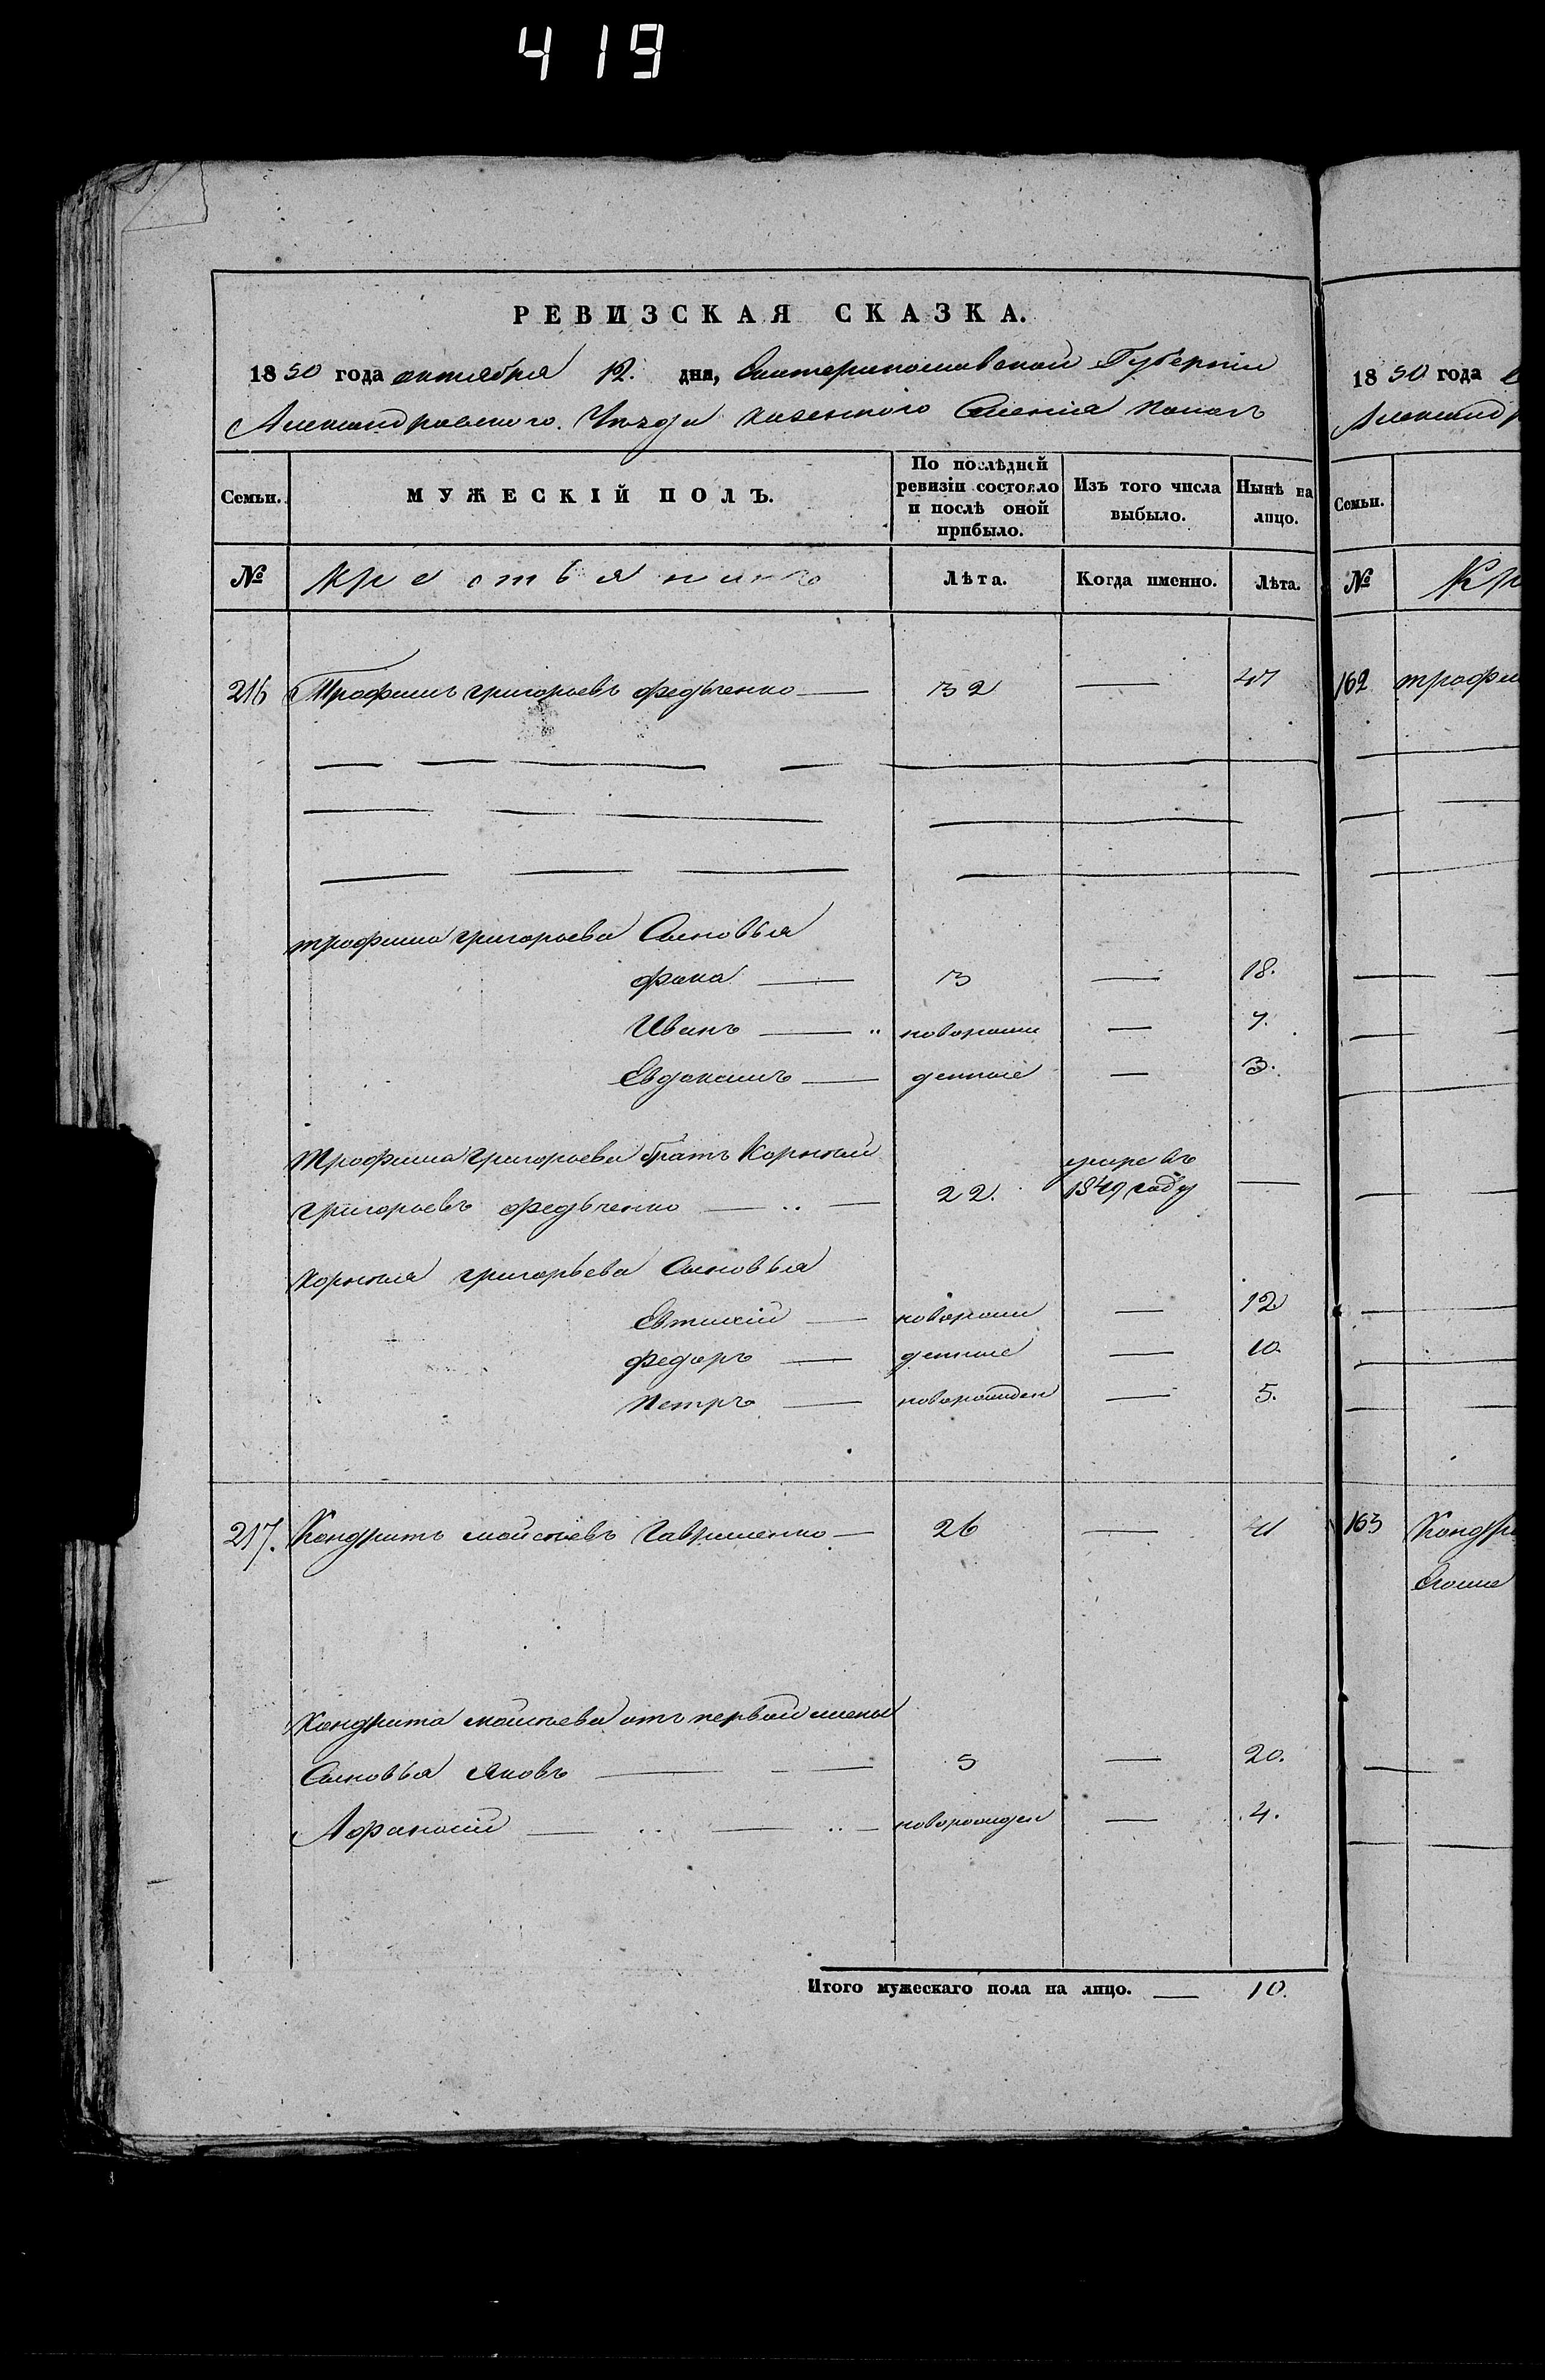 419
РЕВИЗСКАЯ СКАЗКА.
1850 года октября 12. дня, Екатеринославской Губерніи
Александровского Уѣзда казенного Селенія
Семьи. МУЖЕСКІЙ ПОЛЪ. По послѣдней ревизіи состояло и послѣ оной прибыло. Изъ того числа выбыло. Нынѣ на лицо.
№ Лѣта. Когда именно. Лѣта.
216 Трофимъ григорьевъ федьченко — 32 — 47
трофима григорьева Сыновья
фока — 3 — 18.
Иванъ — " новорожи — 7.
Евдокимъ — денные — 3.
Трофима григорьева братъ Корнѣй
григорьевъ федьченко — 22. умре въ 1849 году —
Корнѣя григорьева Сыновья
Евтихій — новорожи — 12
федоръ — денные — 10.
Петръ — новорожден — 5.
217. Кондратъ моисѣевъ Гавриленко — 26 — 41
Кондрата моисѣева отъ первой жены
Сыновья Яковъ — 5 — 20.
Афанасій — новорожден — 4.
Итого мужескаго пола на лицо. — 10.
1850 года
Александр
Семьи.
№ Кр
162 трофи
163 Кондра